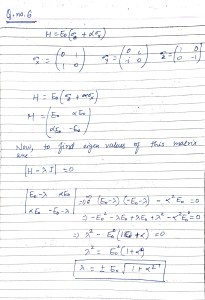 Q.no.6
H = E₀(σz + ασx)
σx = (0 1 / 1 0) σy = (0 i / i 0) σz = (1 0 / 0 -1)
H = E₀(σz + ασx)
H = (E₀ αE₀ / αE₀ -E₀)
Now, to find eigen values of this matrix
are
|H - λI| = 0
|E₀-λ αE₀ / αE₀ -E₀-λ| ⇒ (E₀-λ)(-E₀-λ) - α²E₀² = 0
⇒ -E₀² - λE₀ + λE₀ + λ² - α²E₀² = 0
⇒ λ² - E₀²(1+α²) = 0
λ² = E₀²(1+α²)
λ = ± E₀ √(1+α²)